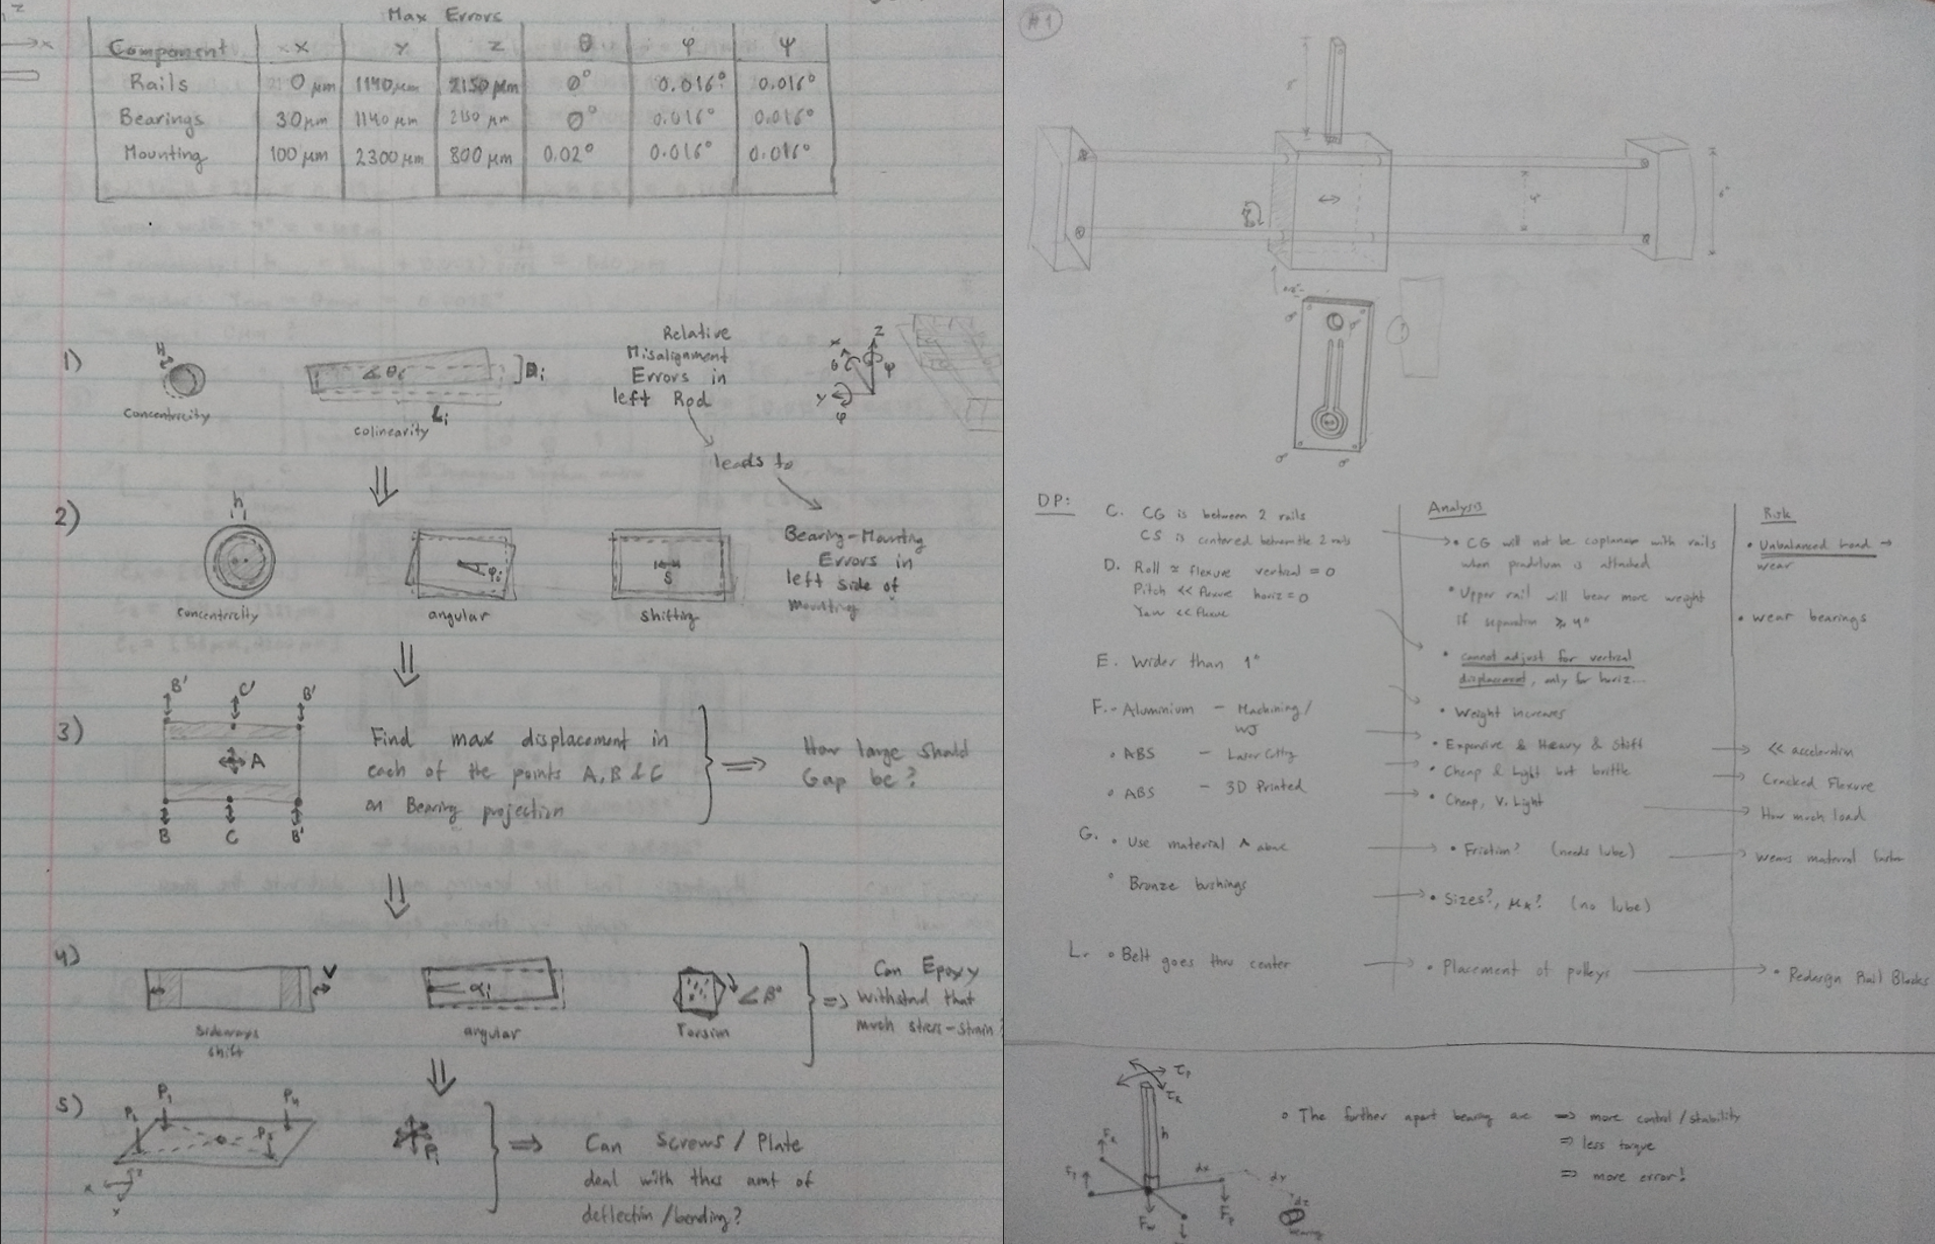 Max Errors
Component X Y Z θ φ ψ
Rails 0 μm 1140 μm 2150 μm 0° 0.016° 0.016°
Bearings 30 μm 1140 μm 2150 μm 0° 0.016° 0.016°
Mounting 100 μm 2300 μm 800 μm 0.02° 0.016° 0.016°
1)
H
Concentricity
∠θi
Di
Li
colinearity
Relative
Misalignment
Errors in
left Rod
Z
X
θ
φ
Y
leads to
2)
h
Concentricity
φi
angular
S
shifting
Bearing-Mounting
Errors in
left side of
mounting
3)
B' C' B'
A
B C B'
Find max displacement in
each of the points A, B & C
on Bearing projection
How large should
Gap be?
4)
Sideways
shift
V
αi
angular
∠β°
Torsion
Can Epoxy
withstand that
much stress-strain?
5)
P1
P4
Pi
x
y
z
Can Screws / Plate
deal with this amt of
deflection/bending?
#1
4"
6"
DP:
C. CG is between 2 rails
CS is centered between the 2 rails
D. Roll ≈ flexure vertical = 0
Pitch << flexure horiz = 0
Yaw << flexure
E. Wider than 1"
F. - Aluminium - Machining/
WJ
• ABS - Laser Cutting
• ABS - 3D Printed
G. • Use material ^ above
• Bronze bushings
L. • Belt goes thru center
Analysis
• CG will not be coplanar with rails
when pendulum is attached
• Upper rail will bear more weight
if separation ≥ 4"
• cannot adjust for vertical
displacement, only for horiz...
• Weight increases
• Expensive & Heavy & Stiff
• Cheap & Light but brittle
• Cheap, V. Light
• Friction? (needs lube)
• Sizes?, μk? (no lube)
• Placement of pulleys
Risk
• Unbalanced load →
wear
• wear bearings
<< acceleration
Cracked Flexure
How much load
Wears material faster
• Redesign Rail Blocks
h
dx
dy
dz
bearing
• The further apart bearing are ⇒ more control/stability
⇒ less torque
⇒ more error!